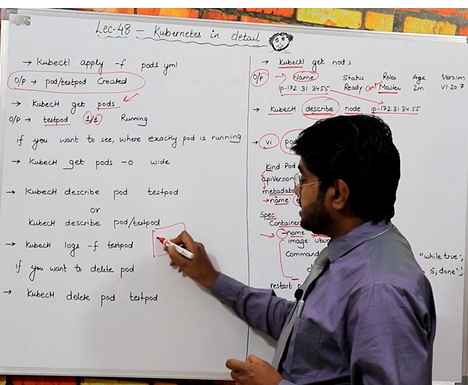 Lec-48 - Kubernetes in detail
→ Kubectl apply -f pod1.yml
O/P → pod/testpod Created
→ Kubectl get pods
O/P → testpod 1/1 Running
if you want to see, where exactly pod is running
→ Kubectl get pods -o wide
→ Kubectl describe pod testpod
or
Kubectl describe pod/testpod
→ Kubectl logs -f testpod
if you want to delete pod
→ Kubectl delete pod testpod
→ Kubectl get nodes
O/P → Name Status Roles Age Version
ip-172 31 34 55 Ready Master 2m V1 20.7
→ Kubectl describe node ip-172 31 34 55
→ vi
kind Pod
apiVersion
metadata
→ name
Spec
Containers
→ -name
image:
Command
"while true,
5, done
restart